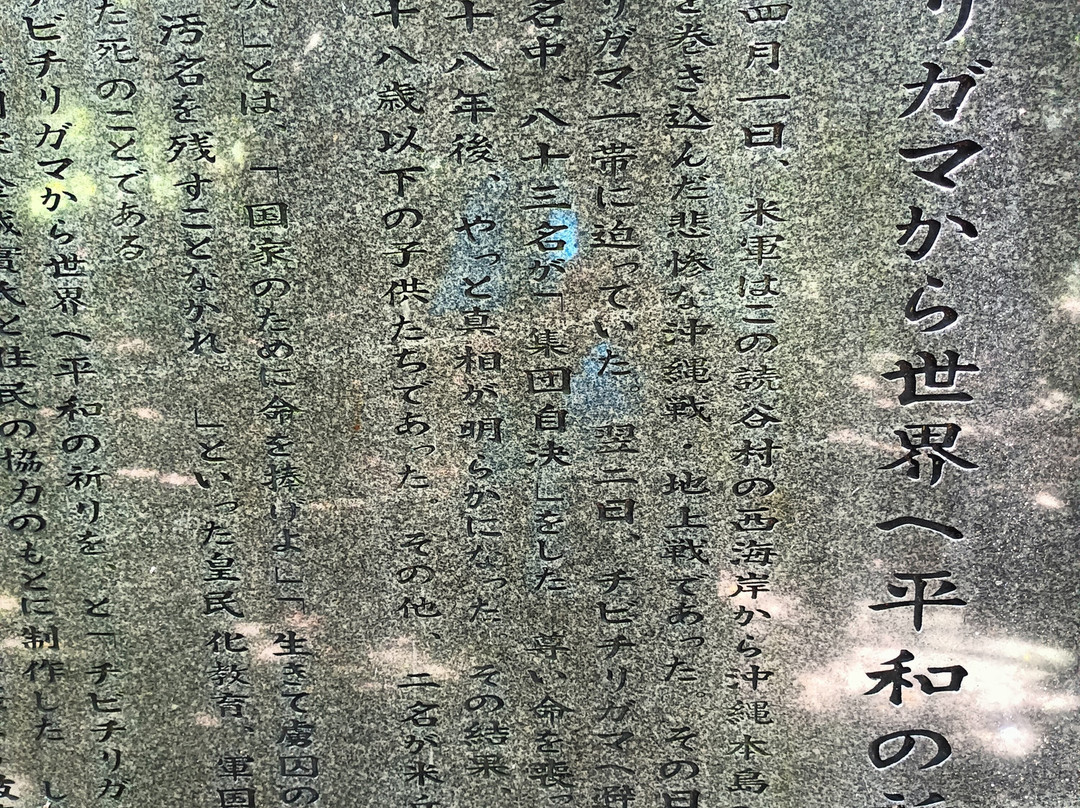 リガマから世界へ平和の
四月一日、米軍はこの読谷村の西海岸から沖縄本島
を巻き込んだ悲惨な沖縄戦・地上戦であった その日
リガマ一帯に迫っていた 翌二日、チビチリガマへ
名中、八十三名が「集団自決」をした 尊い命を喪っ
十八年後、やっと真相が明らかになった その結果、
十八歳以下の子供たちであった その他、二名が米
決」とは、「国家のために命を捧げよ」「生きて虜囚の
汚名を残すことなかれ 」といった皇民化教育、軍国
た死のことである
ビチリガマから世界へ平和の祈りを、と「チビチリガ
氏と住民の協力のもとに制作した し